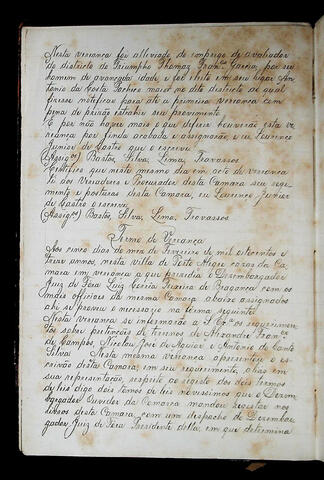 Nesta vereança foi alleviado do emprego de avaliador
do districto do Triumpho Thomaz Fran.co Garcia, por ser
homem de avançada idade e foi eleito em seu lugar An-
tonio da Costa Pacheco maior no dito districto ao qual
fizesse notificar para até a primeira vereança com
pena de prisão extrahir seu provimento.
E por não haver mais o que deferir houverão esta ve-
reança por finda acabada e assignarão, e eu Lourenço
Junior de Castro que o escrevi.
(Assig.os) Bastos, Silva, Lima, Travassos
Certifico que neste mesmo dia em acto de vereança
os dos Vereadores e Procurador desta Camara seu regi-
mento e posturas desta Camara, eu Lourenço Junior
de Castro o escrevi.
(Assig.os) Bastos, Silva, Lima, Travassos
Termo de Vereança
Aos cinco dias do mez de Fevereiro de mil oitocentos e
treze annos, nesta villa de Porto Alegre cazas da Ca-
mara em vereança a que presedio o Dezembargador
Juiz de Fora Luiz Corrêa Teixeira de Bragança com os
mais officiaes da mesma Camara abaixo assignados
ahi se proveu o necessario na forma seguinte
Nesta vereança se informarão a S. Ex.a os requerimen-
tos sobre pertenções de terrenos de Alexandre Fran.co
de Campos, Nicolau José de Aguiar e Antonio de Cast.
Silva. Nesta mesma vereança apresentou o es-
crivão desta Camara, em seu requerimento, alias em
sua representação, respeito ao registo dos dois termos
de leis digo dois tomos de leis novissimas que o Dezem-
bargador Ouvidor da Comarca mandou registar nos
livros desta Camara com um despacho do Dezembar-
gador Juiz de Fora Presidente della, em que determina